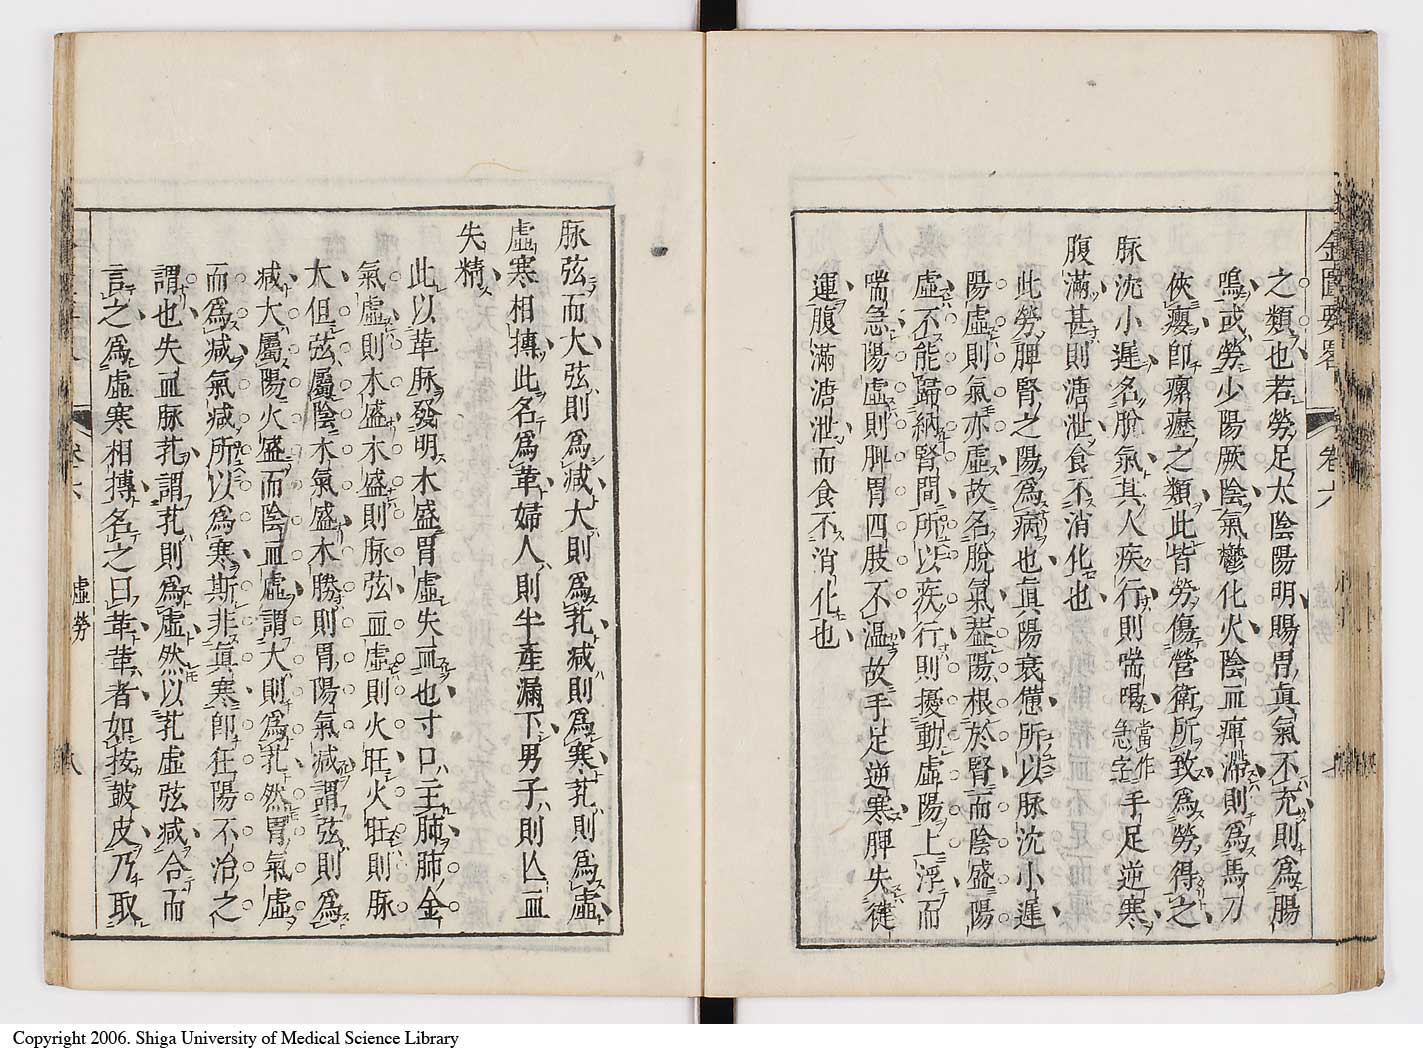 金匱要畧
卷六
之類也若勞足太陰陽明腸胃眞氣不充則為腸
鳴或勞少陽厥陰氣鬱化火陰血痺滯則為馬刀
俠癭卽瘰癧之類此皆勞傷營衛所致為勞得之
脉沈小遲名脫氣其人疾行則喘喝當作急字手足逆寒
腹滿甚則溏泄食不消化也
此勞脾腎之陽為病也眞陽衰憊所以脉沈小遲
陽虛則氣亦虛故名脫氣葢陽根於腎而陰盛陽
虛不能歸納腎間所以疾行則擾動虛陽上浮而
喘急陽虛則脾胃四肢不温故手足逆寒脾失健
運腹滿溏泄而食不消化也
脉弦而大弦則為減大則為芤減則為寒芤則為虛
虛寒相摶此名為革婦人則半產漏下男子則亾血
失精
此以革脉發明木盛胃虛失血也寸口主肺肺金
氣虛則木盛木盛則脉弦血虛則火旺火旺則脉
大但弦屬陰木氣盛木勝則胃陽氣減謂弦則為
減大屬陽火盛而陰血虛謂大則為芤然胃氣虛
而為減氣減所以為寒斯非眞寒卽狂陽不治之
謂也失血脉芤謂芤則為虛然以芤虛弦減合而
言之為虛寒相摶名之曰革革者如按鼓皮乃取
卷六
虛勞
八
Copyright 2006. Shiga University of Medical Science Library